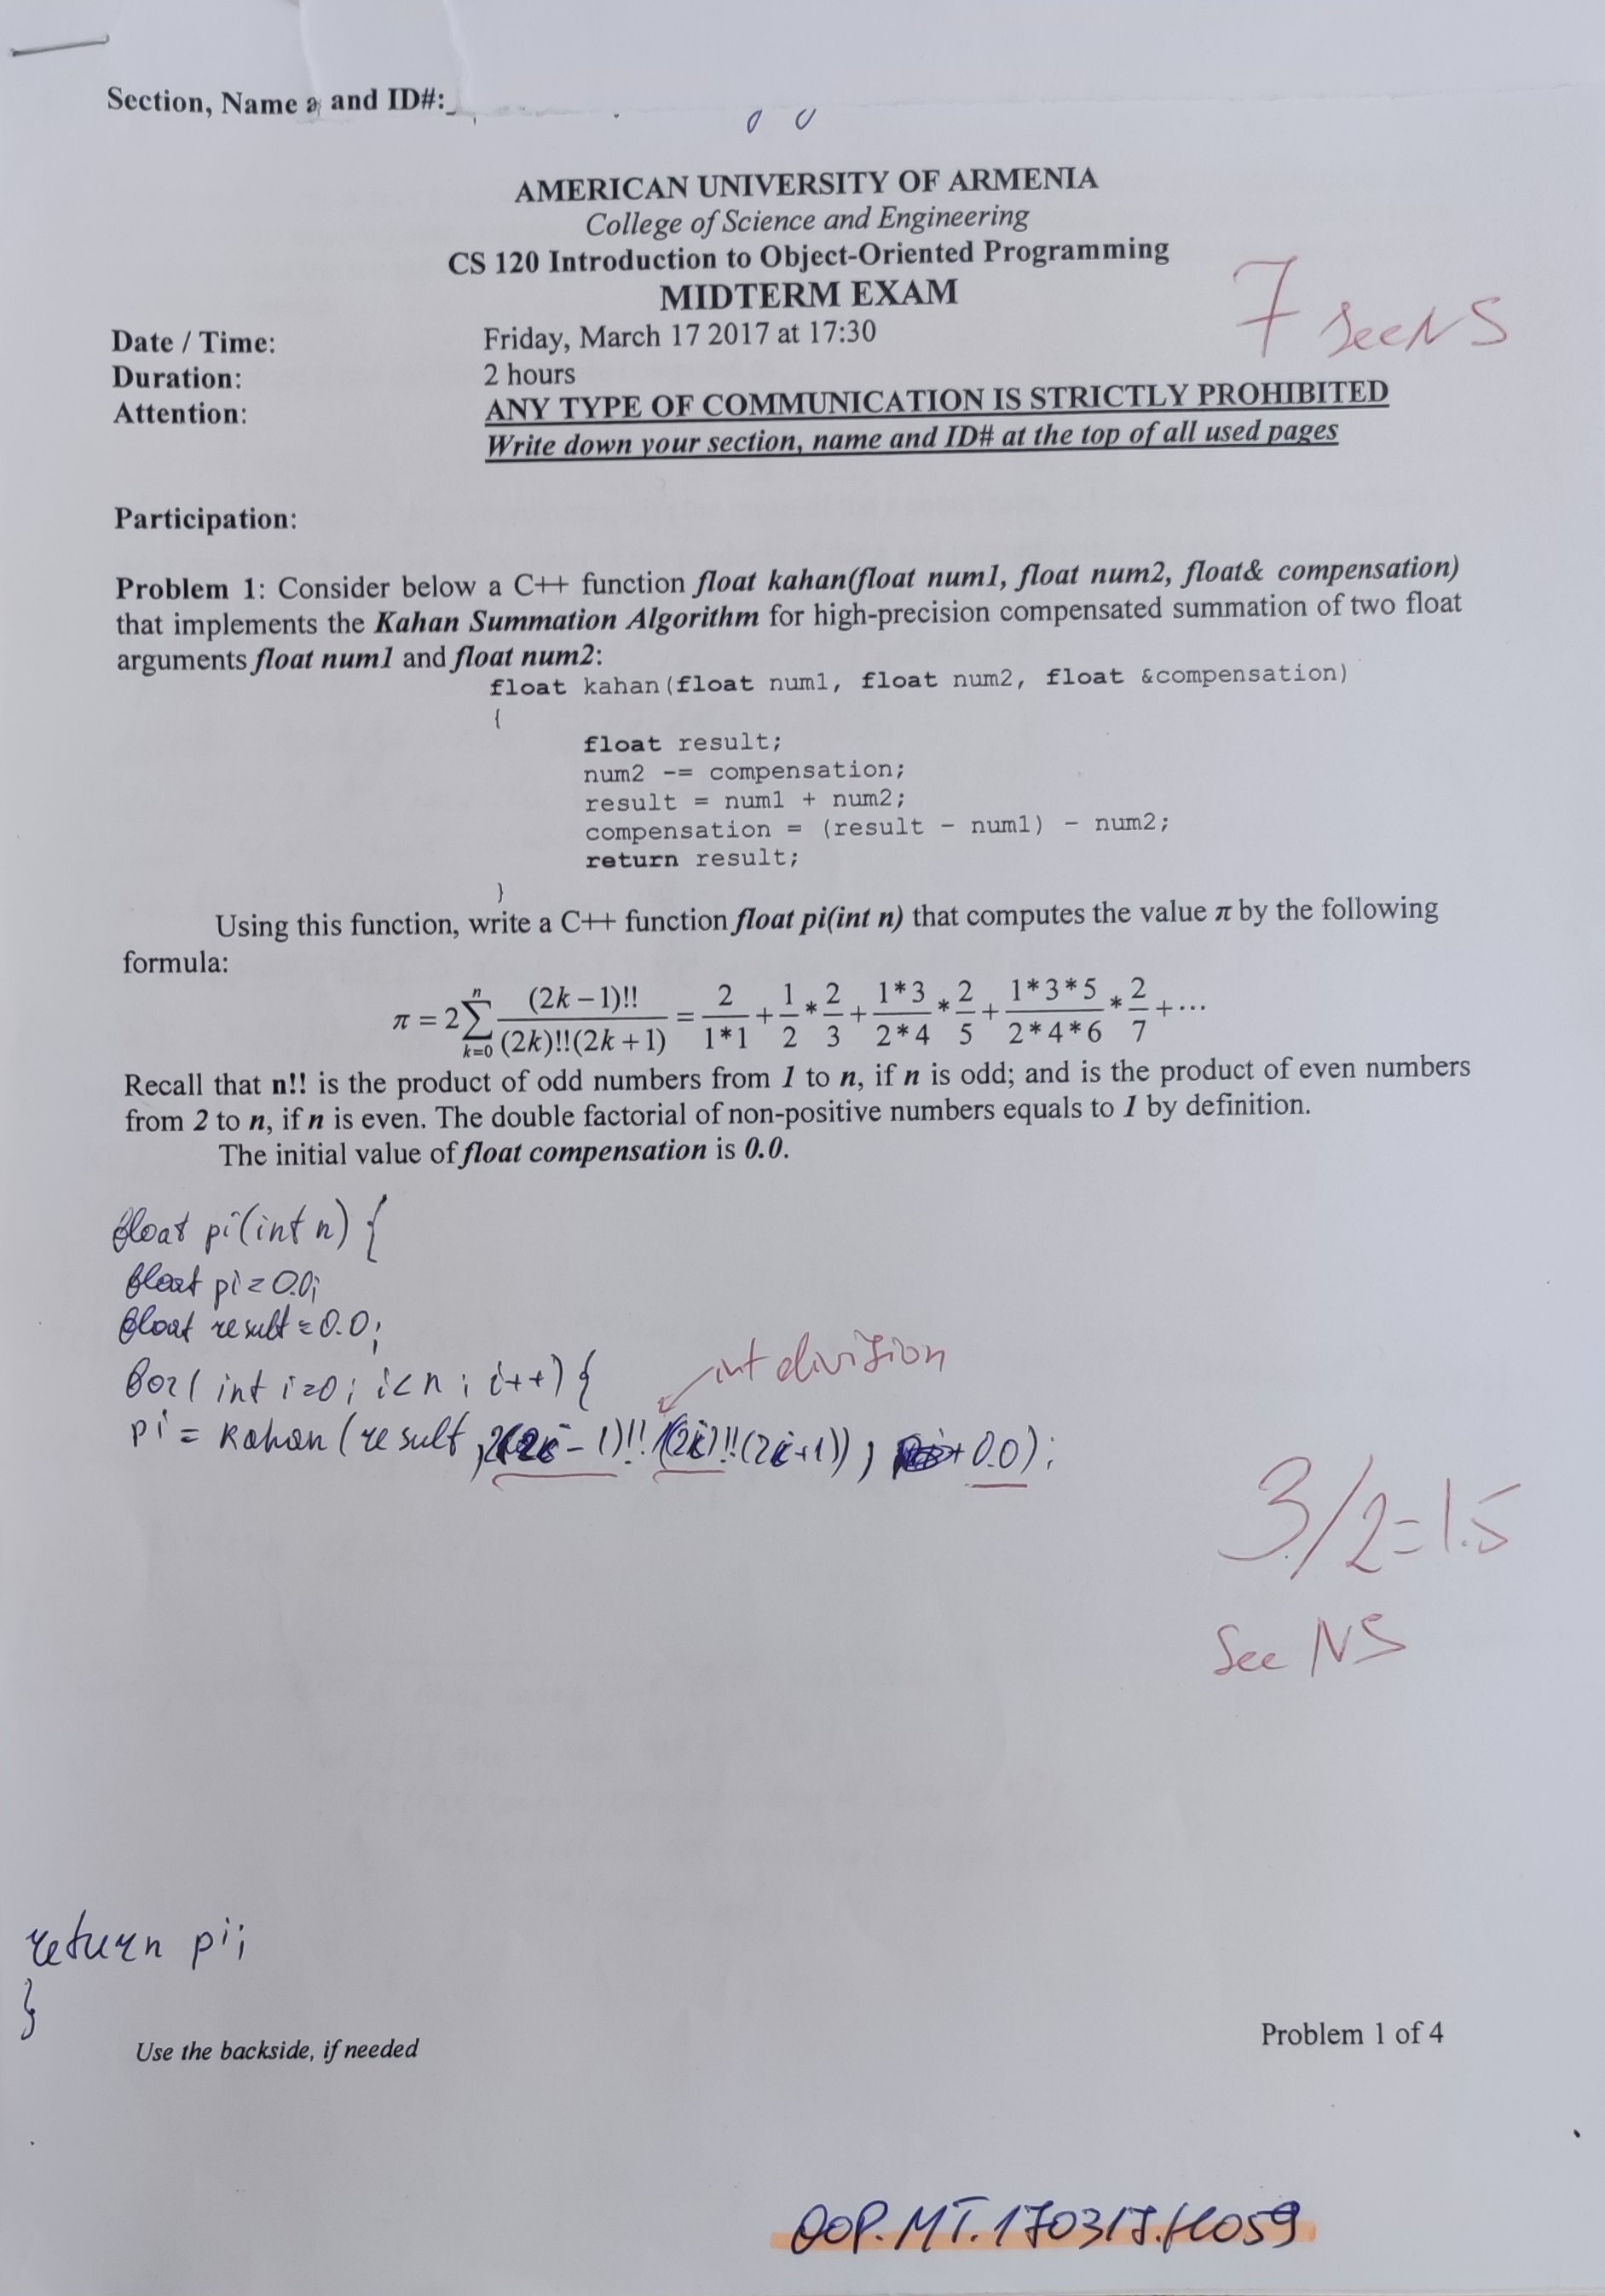 Section, Name a and ID#:_
AMERICAN UNIVERSITY OF ARMENIA
College of Science and Engineering
CS 120 Introduction to Object-Oriented Programming
MIDTERM EXAM
7 See NS
Date / Time: Friday, March 17 2017 at 17:30
Duration: 2 hours
Attention: ANY TYPE OF COMMUNICATION IS STRICTLY PROHIBITED
Write down your section, name and ID# at the top of all used pages
Participation:
Problem 1: Consider below a C++ function float kahan(float num1, float num2, float& compensation)
that implements the Kahan Summation Algorithm for high-precision compensated summation of two float
arguments float num1 and float num2:
float kahan(float num1, float num2, float &compensation)
{
float result;
num2 -= compensation;
result = num1 + num2;
compensation = (result - num1) - num2;
return result;
}
Using this function, write a C++ function float pi(int n) that computes the value π by the following
formula:
π = 2 ∑_{k=0}^{n} (2k-1)!! / ((2k)!!(2k+1)) = 2/(1*1) + 1/2 * 2/3 + (1*3)/(2*4) * 2/5 + (1*3*5)/(2*4*6) * 2/7 + ...
Recall that n!! is the product of odd numbers from 1 to n, if n is odd; and is the product of even numbers
from 2 to n, if n is even. The double factorial of non-positive numbers equals to 1 by definition.
The initial value of float compensation is 0.0.
float pi(int n) {
float pi = 0.0;
float result = 0.0;
for( int i=0; i<n; i++) {
int division
pi = kahan(result, 2(2i-1)!!/(2i)!!(2i+1)), 0.0);
3/2=1.5
See NS
return pi;
}
Use the backside, if needed
Problem 1 of 4
OOP.MT.170317.H059